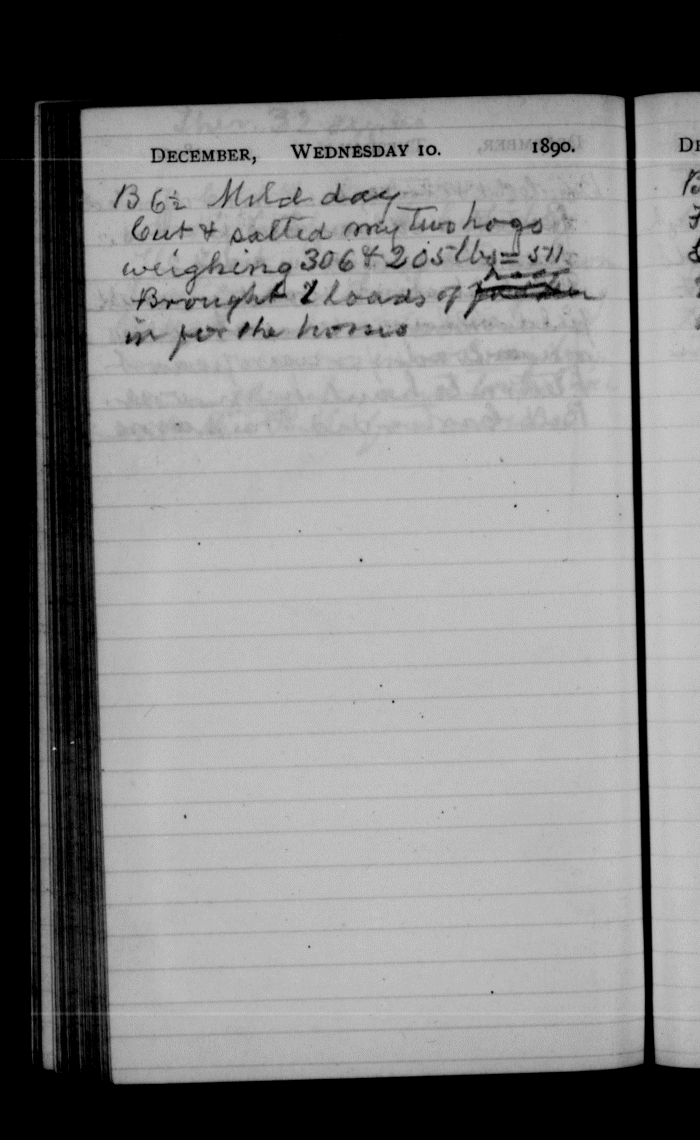 DECEMBER, WEDNESDAY 10. 1890.
B 6½ Mild day
Cut & salted my two hogs
weighing 306 & 205 lbs = 511
Brought 2 loads of
in for the horses